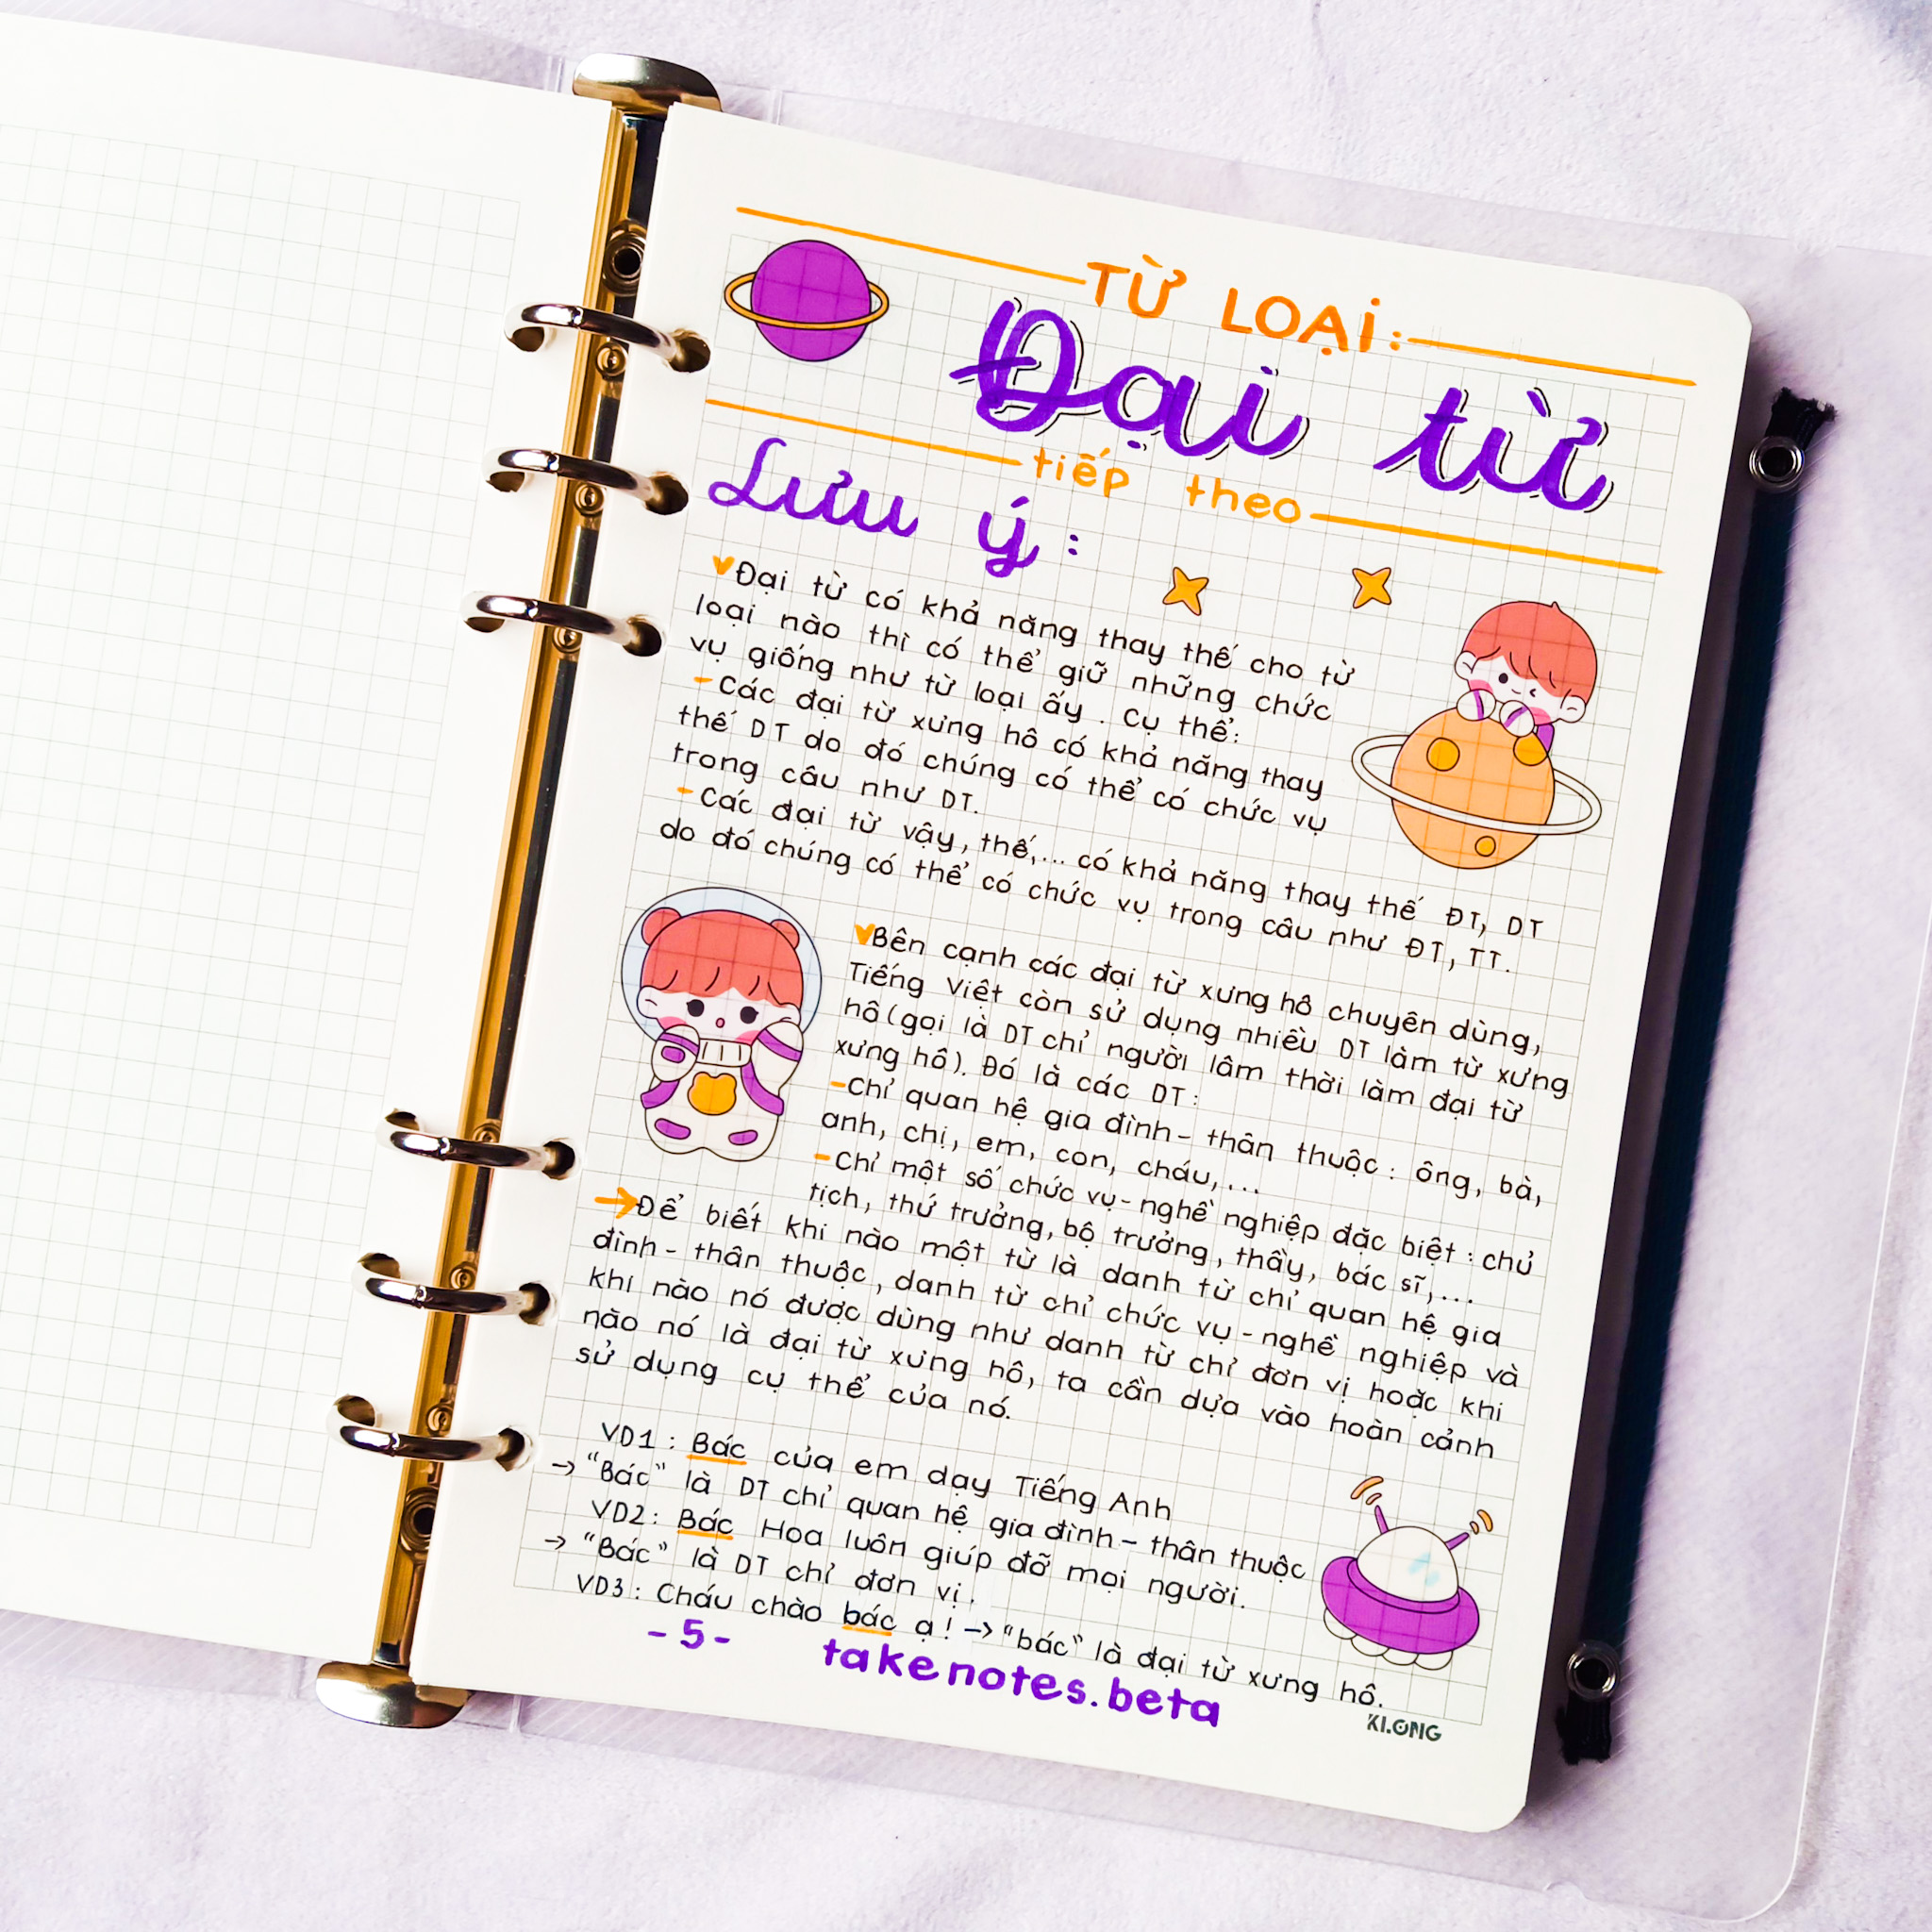 TỪ LOẠI:
Đại từ
tiếp theo
Lưu ý:
Đại từ có khả năng thay thế cho từ
loại nào thì có thể giữ những chức
vụ giống như từ loại ấy. Cụ thể:
- Các đại từ xưng hô có khả năng thay
thế DT do đó chúng có thể có chức vụ
trong câu như DT.
- Các đại từ vậy, thế,... có khả năng thay thế ĐT, DT
do đó chúng có thể có chức vụ trong câu như ĐT, TT.
Bên cạnh các đại từ xưng hô chuyên dùng,
Tiếng Việt còn sử dụng nhiều DT làm từ xưng
hô (gọi là DT chỉ người lâm thời làm đại từ
xưng hô). Đó là các DT:
- Chỉ quan hệ gia đình - thân thuộc: ông, bà,
anh, chị, em, con, cháu,...
- Chỉ một số chức vụ - nghề nghiệp đặc biệt: chủ
tịch, thứ trưởng, bộ trưởng, thầy, bác sĩ,...
→ Để biết khi nào một từ là danh từ chỉ quan hệ gia
đình - thân thuộc, danh từ chỉ chức vụ - nghề nghiệp và
khi nào nó được dùng như danh từ chỉ đơn vị hoặc khi
nào nó là đại từ xưng hô, ta cần dựa vào hoàn cảnh
sử dụng cụ thể của nó.
VD1: Bác của em dạy Tiếng Anh
→ "Bác" là DT chỉ quan hệ gia đình - thân thuộc
VD2: Bác Hoa luôn giúp đỡ mọi người.
→ "Bác" là DT chỉ đơn vị.
VD3: Cháu chào bác ạ! → "bác" là đại từ xưng hô.
-5- takenotes.beta
KI.ONG